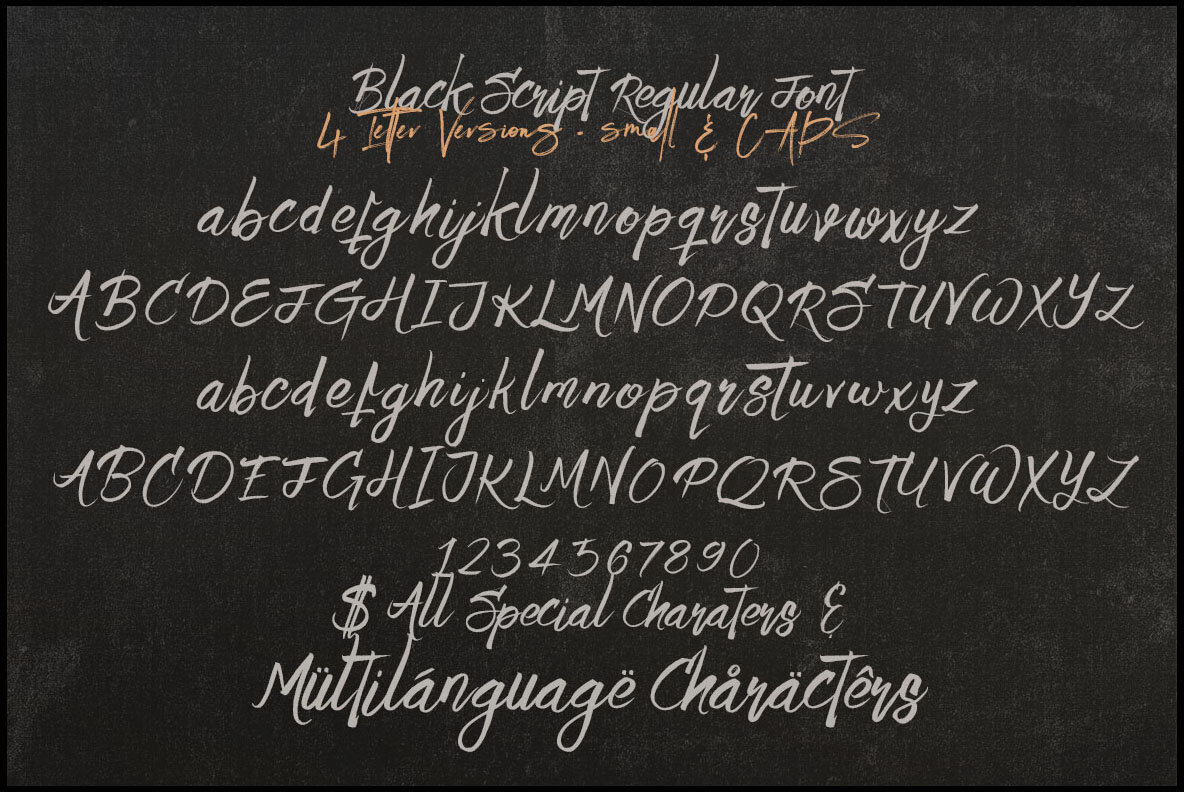 Black Script Regular Font
4 Letter Versions - small & CAPS
abcdefghijklmnopqrstuvwxyz
ABCDEFGHIJKLMNOPQRSTUVWXYZ
abcdefghijklmnopqrstuvwxyz
ABCDEFGHIJKLMNOPQRSTUVWXYZ
1234567890
$ All Special Charaters &
Mültilánguagë Chåräctêrs